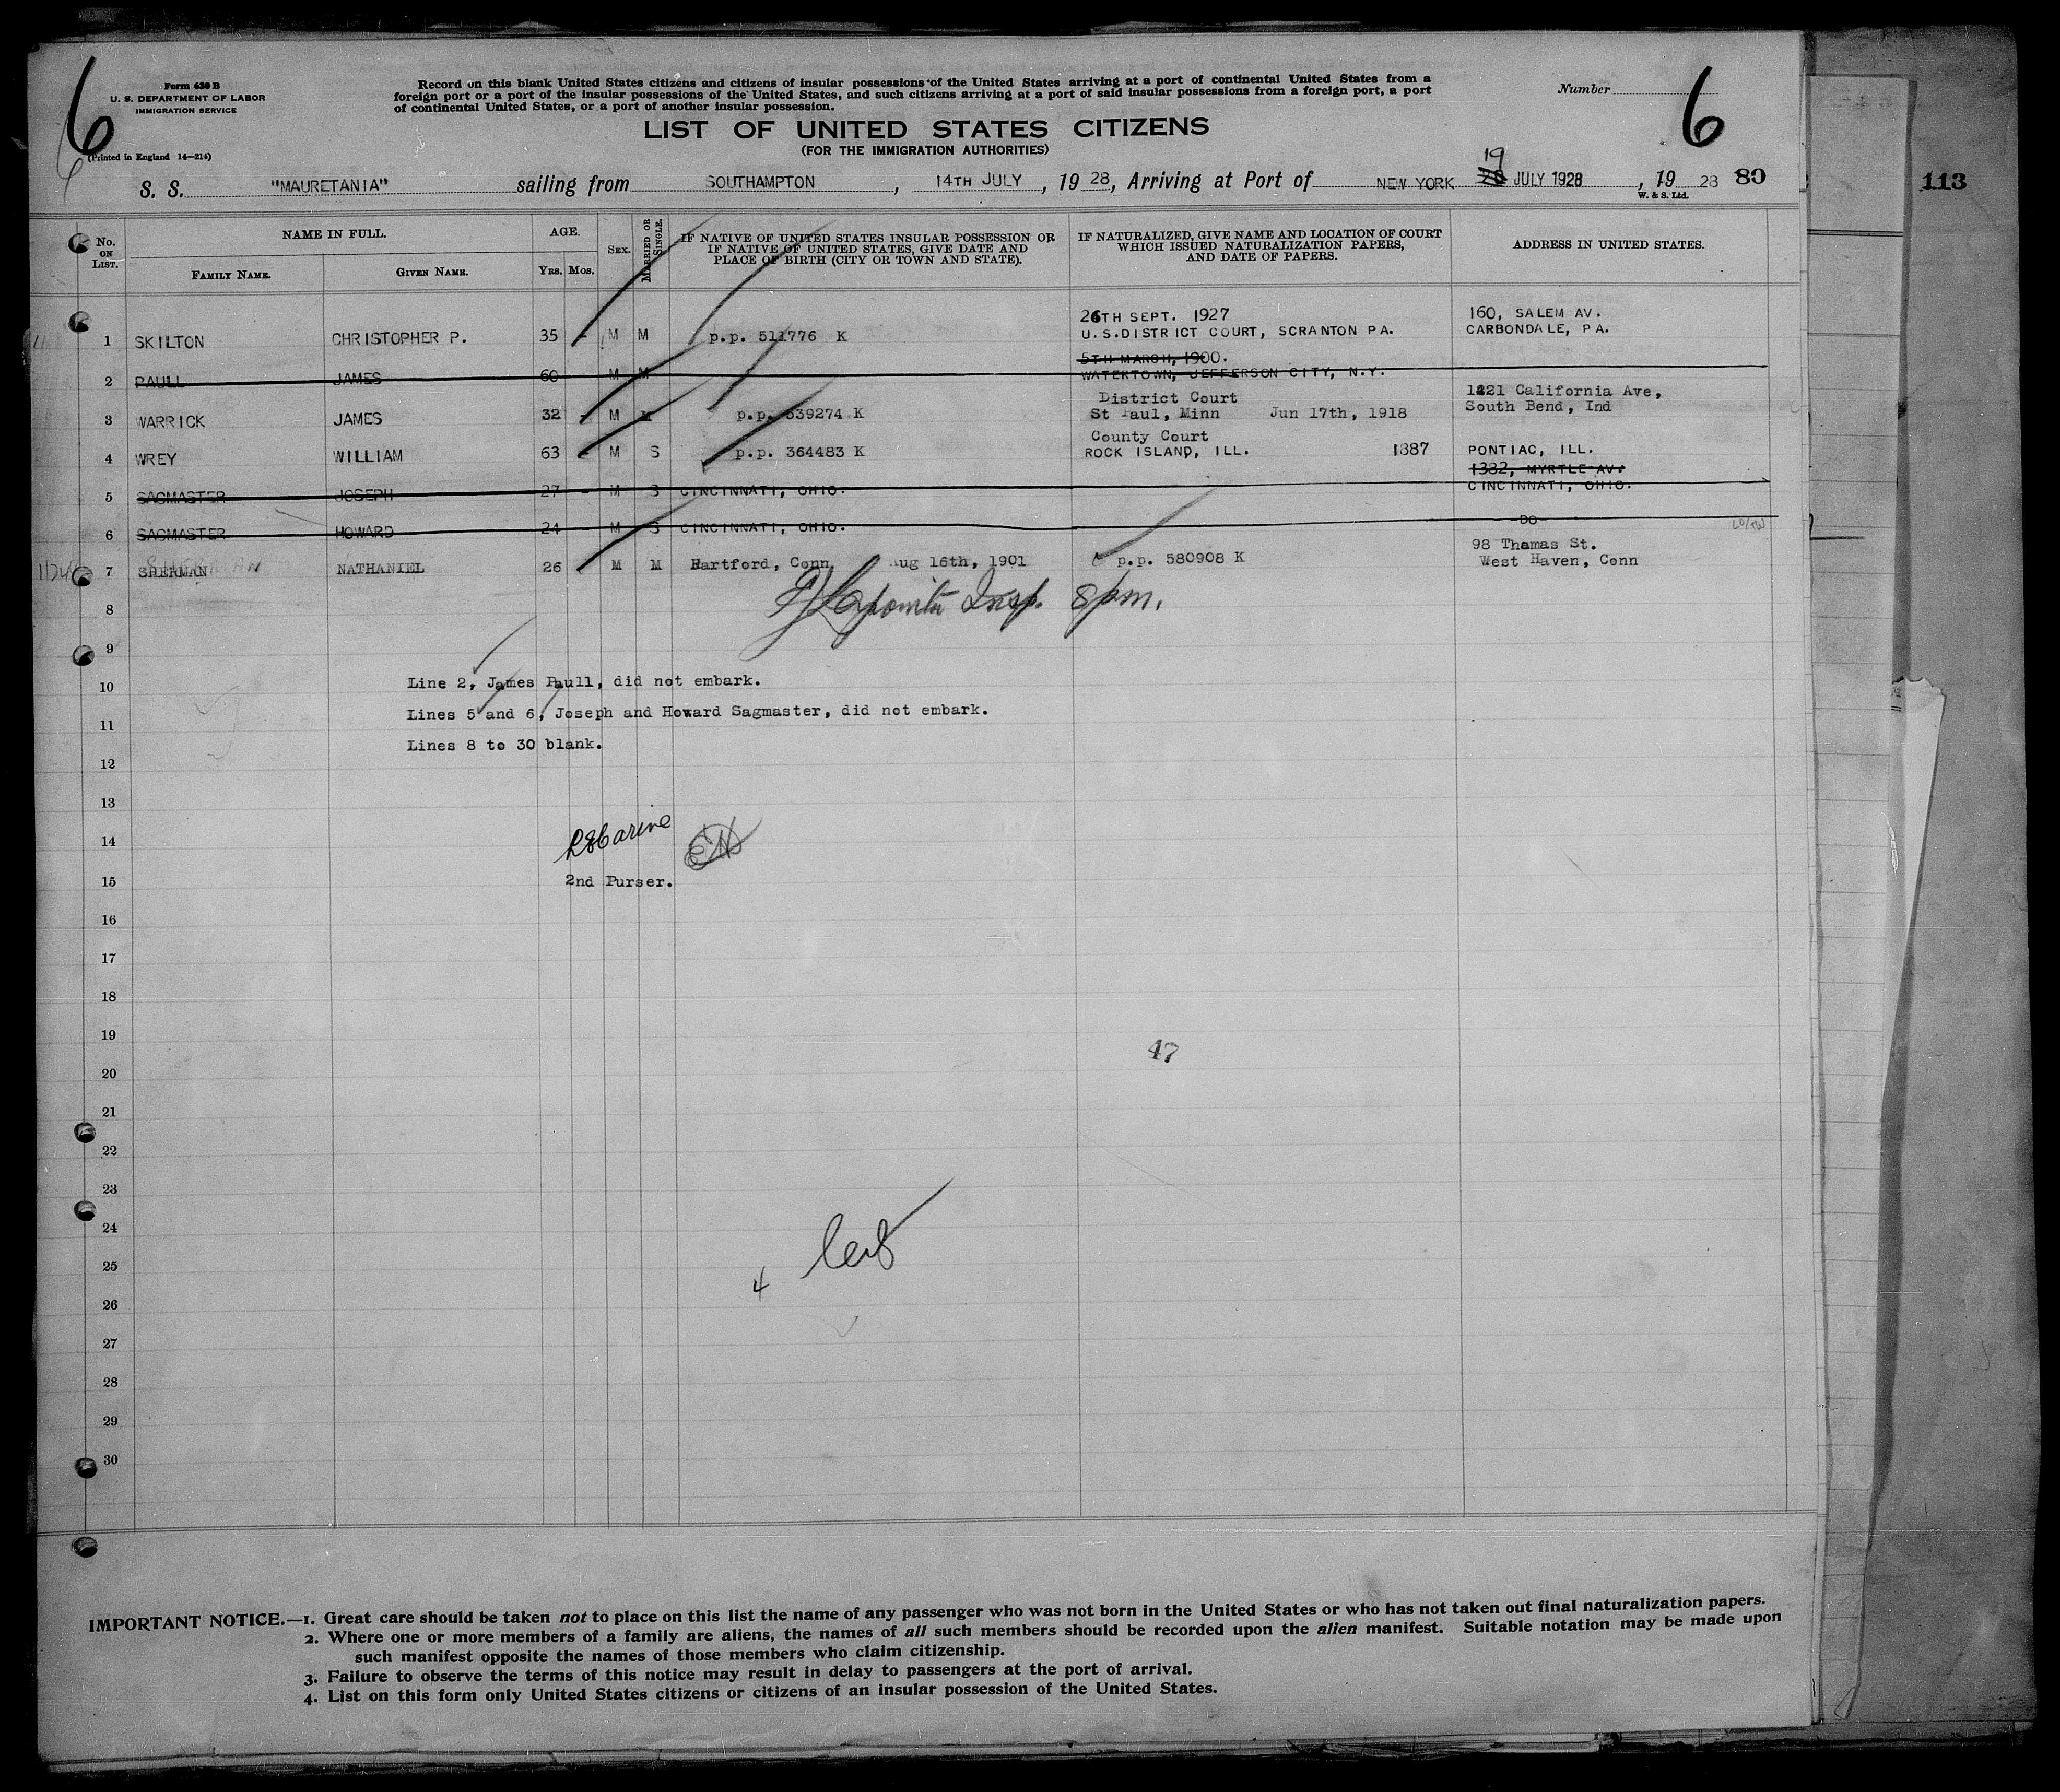 6
Form 630 B
U. S. DEPARTMENT OF LABOR
IMMIGRATION SERVICE
(Printed in England 14—214)
Record on this blank United States citizens and citizens of insular possessions of the United States arriving at a port of continental United States from a
foreign port or a port of the insular possessions of the United States, and such citizens arriving at a port of said insular possessions from a foreign port, a port
of continental United States, or a port of another insular possession.
Number
6
LIST OF UNITED STATES CITIZENS
(FOR THE IMMIGRATION AUTHORITIES)
S. S. "MAURETANIA" sailing from SOUTHAMPTON, 14TH JULY, 19 28, Arriving at Port of NEW YORK 19 JULY 1928, 19 28 80
W. & S. Ltd.
113
No. ON LIST. NAME IN FULL. AGE. SEX. MARRIED OR SINGLE. IF NATIVE OF UNITED STATES INSULAR POSSESSION OR IF NATIVE OF UNITED STATES, GIVE DATE AND PLACE OF BIRTH (CITY OR TOWN AND STATE). IF NATURALIZED, GIVE NAME AND LOCATION OF COURT WHICH ISSUED NATURALIZATION PAPERS, AND DATE OF PAPERS. ADDRESS IN UNITED STATES.
FAMILY NAME. GIVEN NAME. YRS. MOS.
26TH SEPT. 1927 160, SALEM AV.
1 SKILTON CHRISTOPHER P. 35 - M M p.p. 511776 K U.S.DISTRICT COURT, SCRANTON PA. CARBONDALE, PA.
5TH MARCH, 1900.
2 PAULL JAMES 60 M M WATERTOWN, JEFFERSON CITY, N.Y.
District Court 1421 California Ave,
3 WARRICK JAMES 32 - M M p.p. 539274 K St Paul, Minn Jun 17th, 1918 South Bend, Ind
County Court
4 WREY WILLIAM 63 - M S p.p. 364483 K ROCK ISLAND, ILL. 1887 PONTIAC, ILL.
1332, MYRTLE AV.
5 SAGMASTER JOSEPH 27 - M S CINCINNATI, OHIO. CINCINNATI, OHIO.
6 SAGMASTER HOWARD 24 - M S CINCINNATI, OHIO. -DO-
98 Thomas St.
7 SHERMAN NATHANIEL 26 M M Hartford, Conn Aug 16th, 1901 p.p. 580908 K West Haven, Conn
8 Insp. 8pm.
9
10 Line 2, James Paull, did not embark.
11 Lines 5 and 6, Joseph and Howard Sagmaster, did not embark.
Lines 8 to 30 blank.
12
13
14
15 2nd Purser.
16
17
18
19
47
20
21
22
23
24
25
4
26
27
28
29
30
IMPORTANT NOTICE.—1. Great care should be taken not to place on this list the name of any passenger who was not born in the United States or who has not taken out final naturalization papers.
2. Where one or more members of a family are aliens, the names of all such members should be recorded upon the alien manifest. Suitable notation may be made upon
such manifest opposite the names of those members who claim citizenship.
3. Failure to observe the terms of this notice may result in delay to passengers at the port of arrival.
4. List on this form only United States citizens or citizens of an insular possession of the United States.